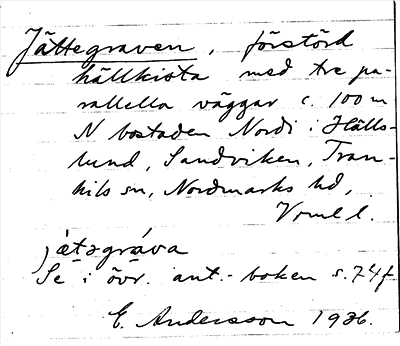 Jättegraven, förstörd
hällkista med tre pa-
rallella väggar c. 100 m
N bostaden Nordi i Hälls-
lund, Sandviken, Tran-
kils sn, Nordmarks hd,
Vrml l.
jätəgráva
Se i övr. ant.-boken s. 74f
E. Andersson 1936.